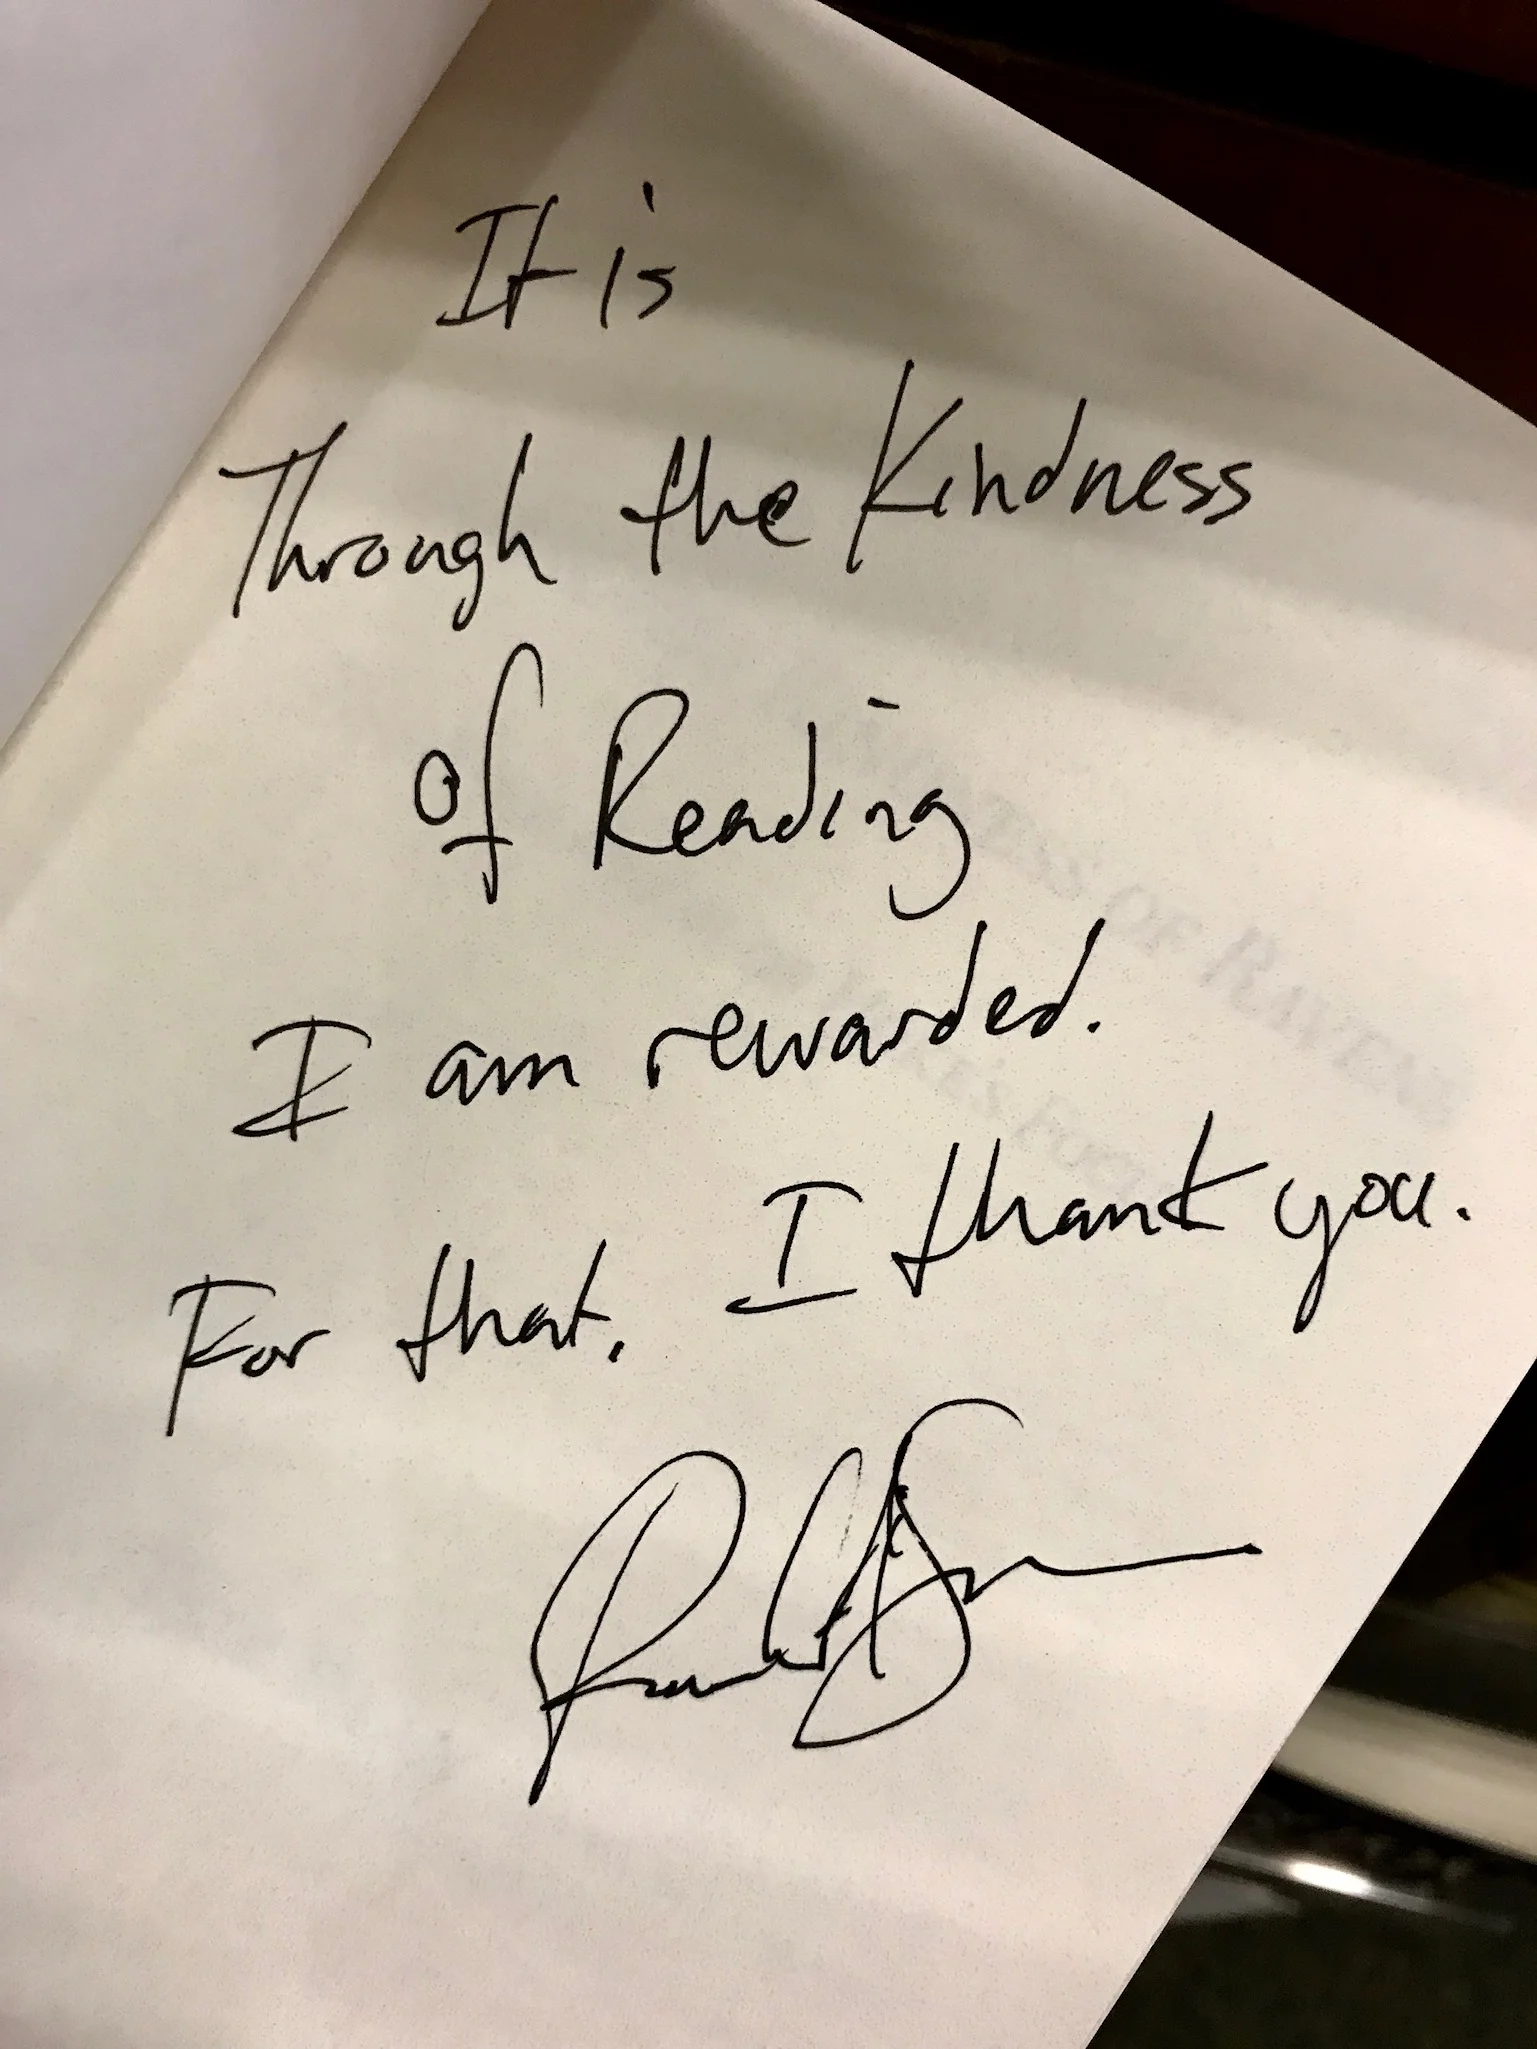 It is
Through the Kindness
of Reading
I am rewarded.
For that, I thank you.
OF RAVENS